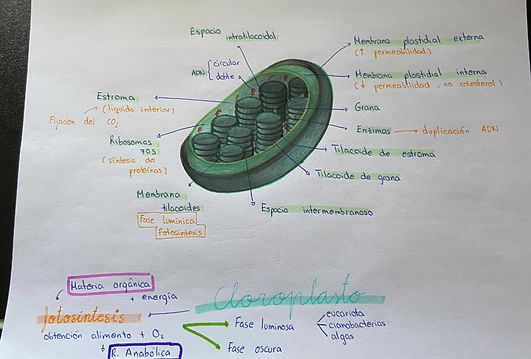 Espacio
intratilacoidal
ADN circular
doble
Membrana plastidial externa
(↑ permeabilidad)
Membrana plastidial interna
(↓ permeabilidad, no colesterol)
Grana
Enzimas → duplicación ADN
Tilacoide de estroma
Tilacoide de grana
Espacio intermembranoso
Estroma
(líquido interior)
Fijación del CO₂
Ribosomas
70S
(síntesis de
proteínas)
Membrana
tilacoides
Fase lumínica
Fotosíntesis
Materia orgánica
+ energía
fotosíntesis
obtención alimento + O₂
R. Anabólica
Cloroplasto
Fase luminosa
Fase oscura
eucariota
cianobacterias
algas